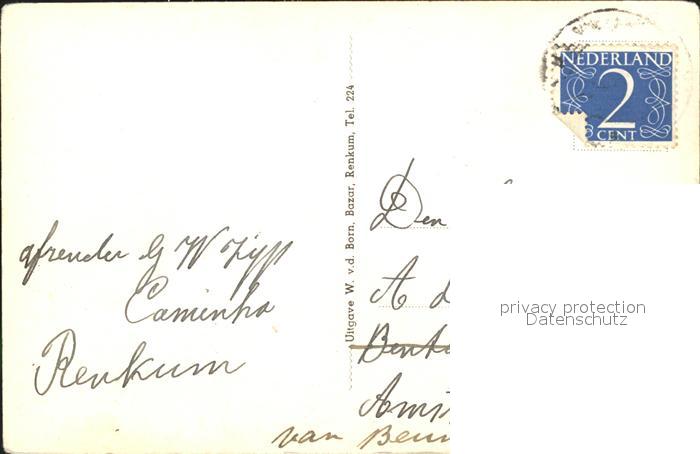 NEDERLAND
2
CENT
Uitgave W. v.d. Born, Bazar, Renkum, Tel. 224
afzender G W Zijp
Caminha
Renkum
Den
A d
Bent
Ams
van Benn
privacy protection
Datenschutz